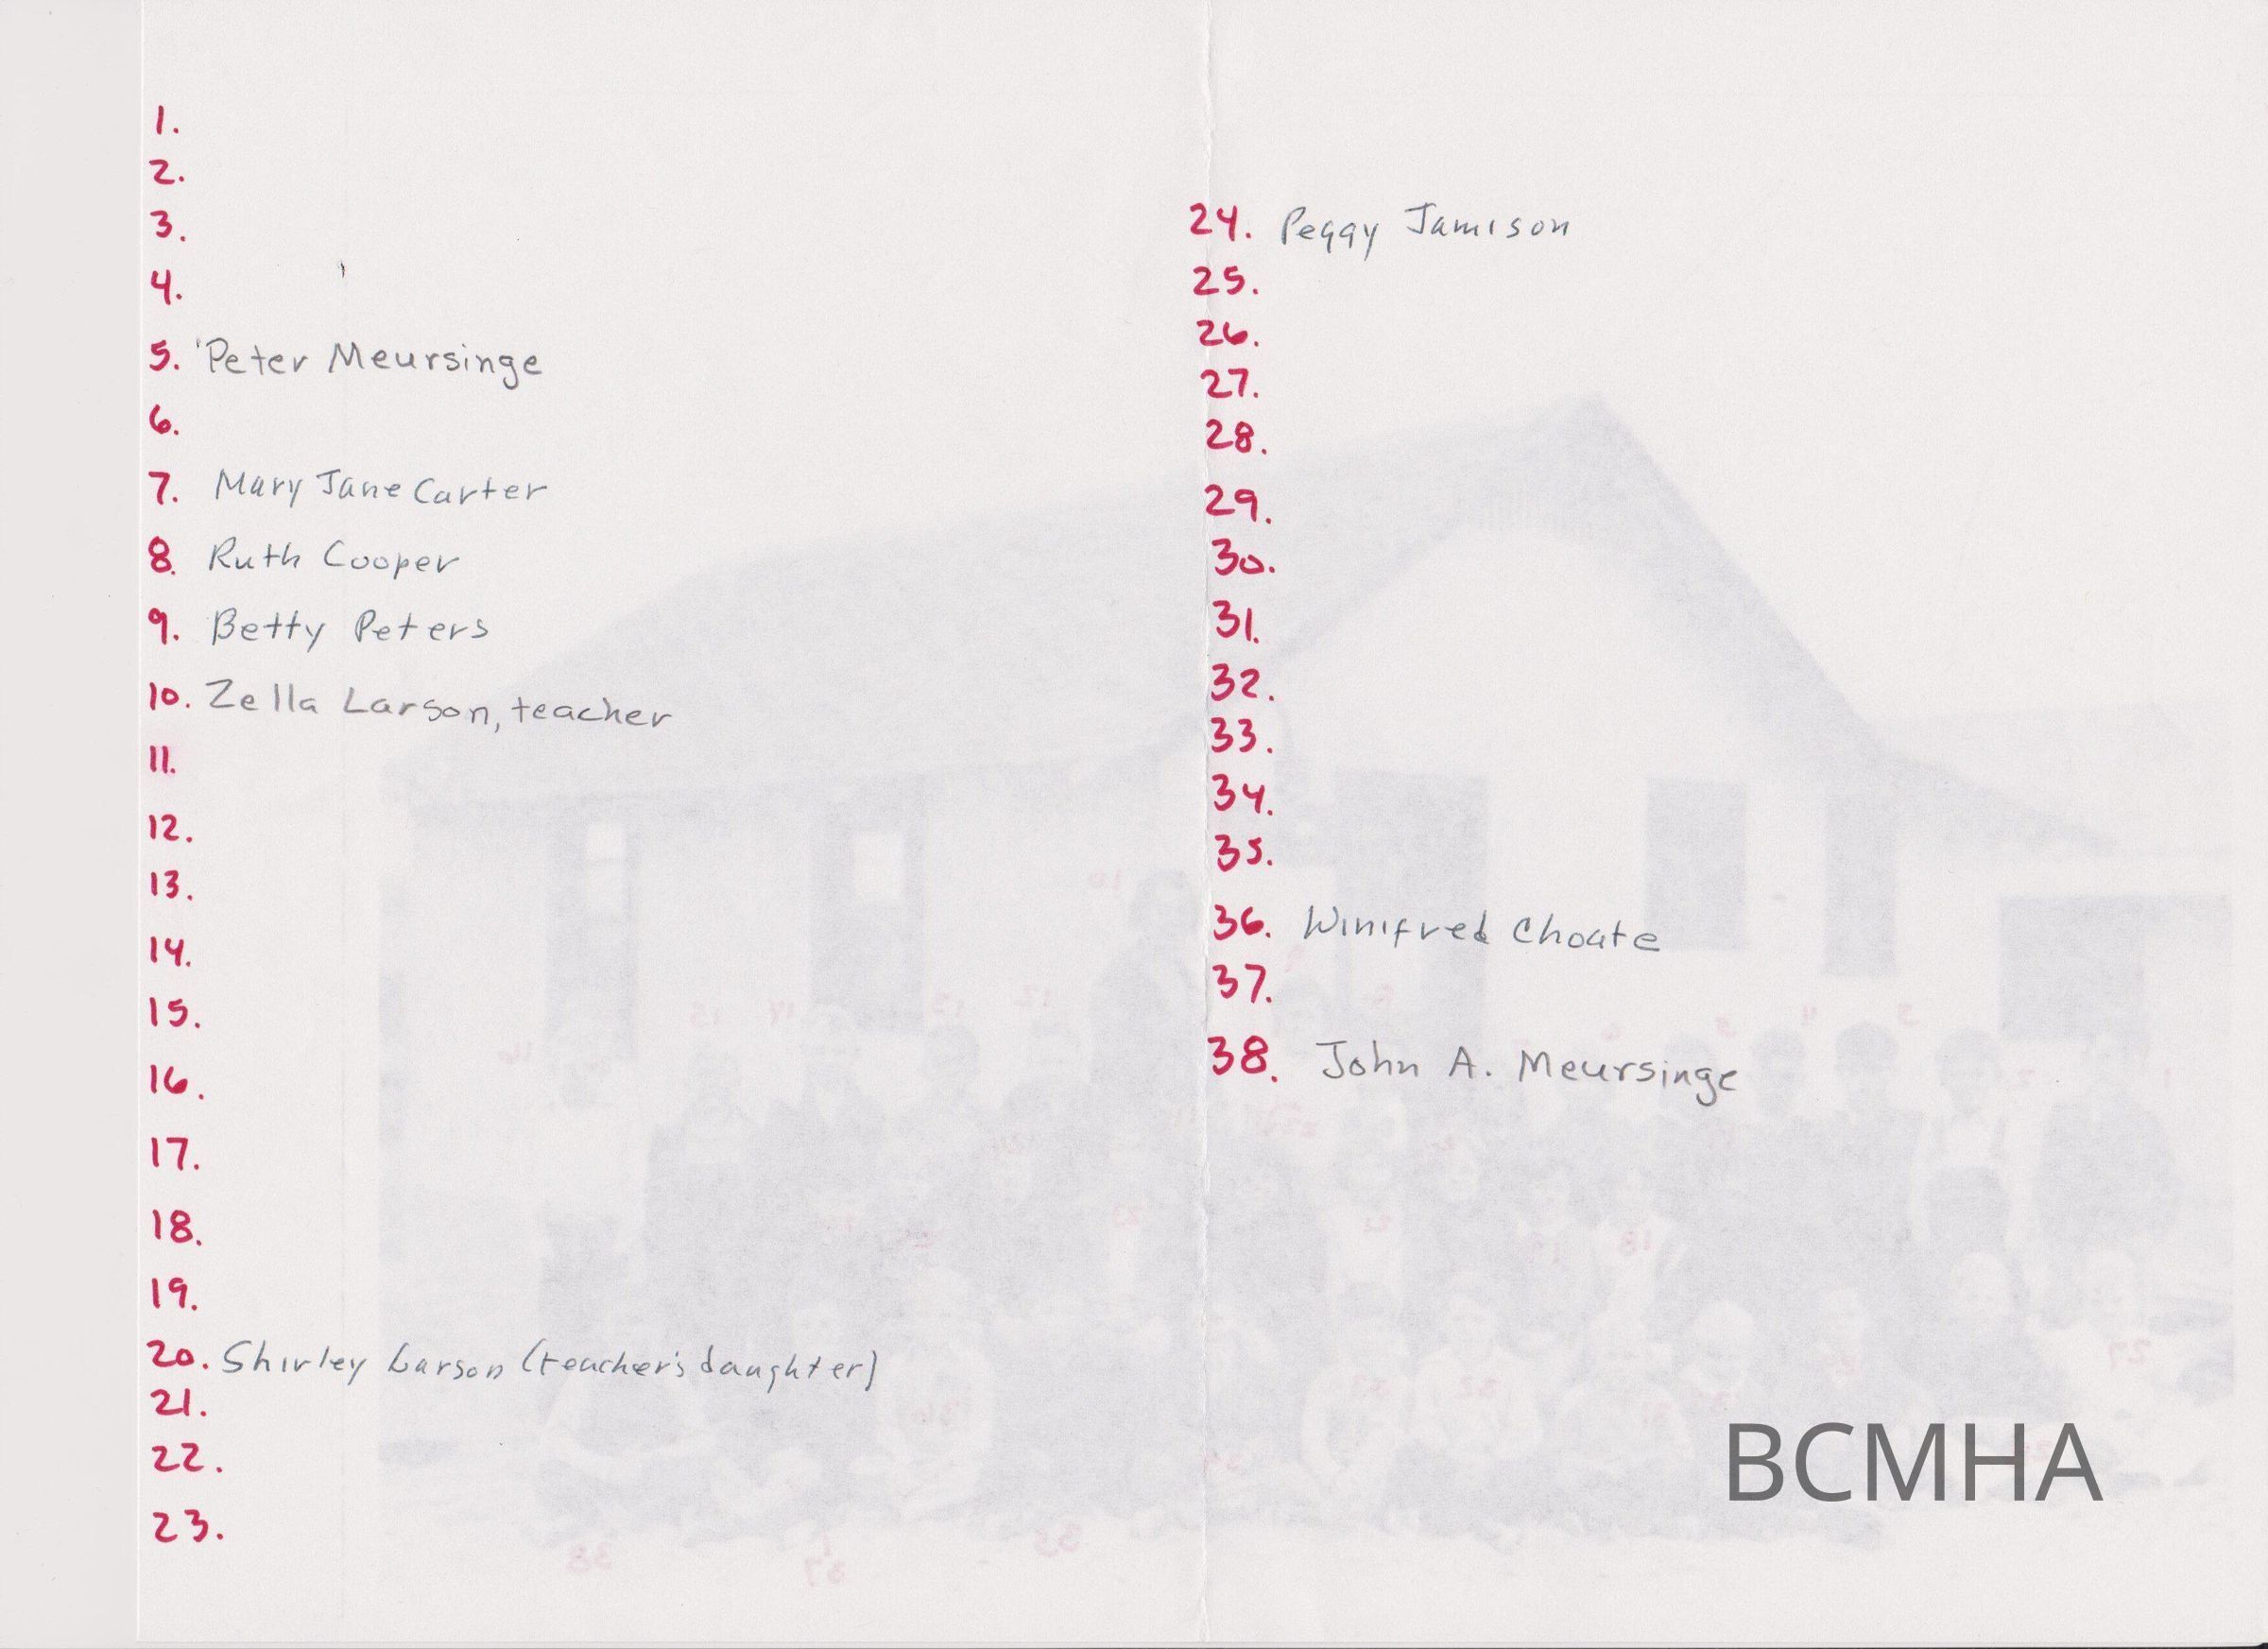 1.
2.
3.
4.
5. Peter Meursinge
6.
7. Mary Jane Carter
8. Ruth Cooper
9. Betty Peters
10. Zella Larson, teacher
11.
12.
13.
14.
15.
16.
17.
18.
19.
20. Shirley Larson (teacher's daughter)
21.
22.
23.
24. Peggy Jamison
25.
26.
27.
28.
29.
30.
31.
32.
33.
34.
35.
36. Winifred Choate
37.
38. John A. Meursinge
BCMHA